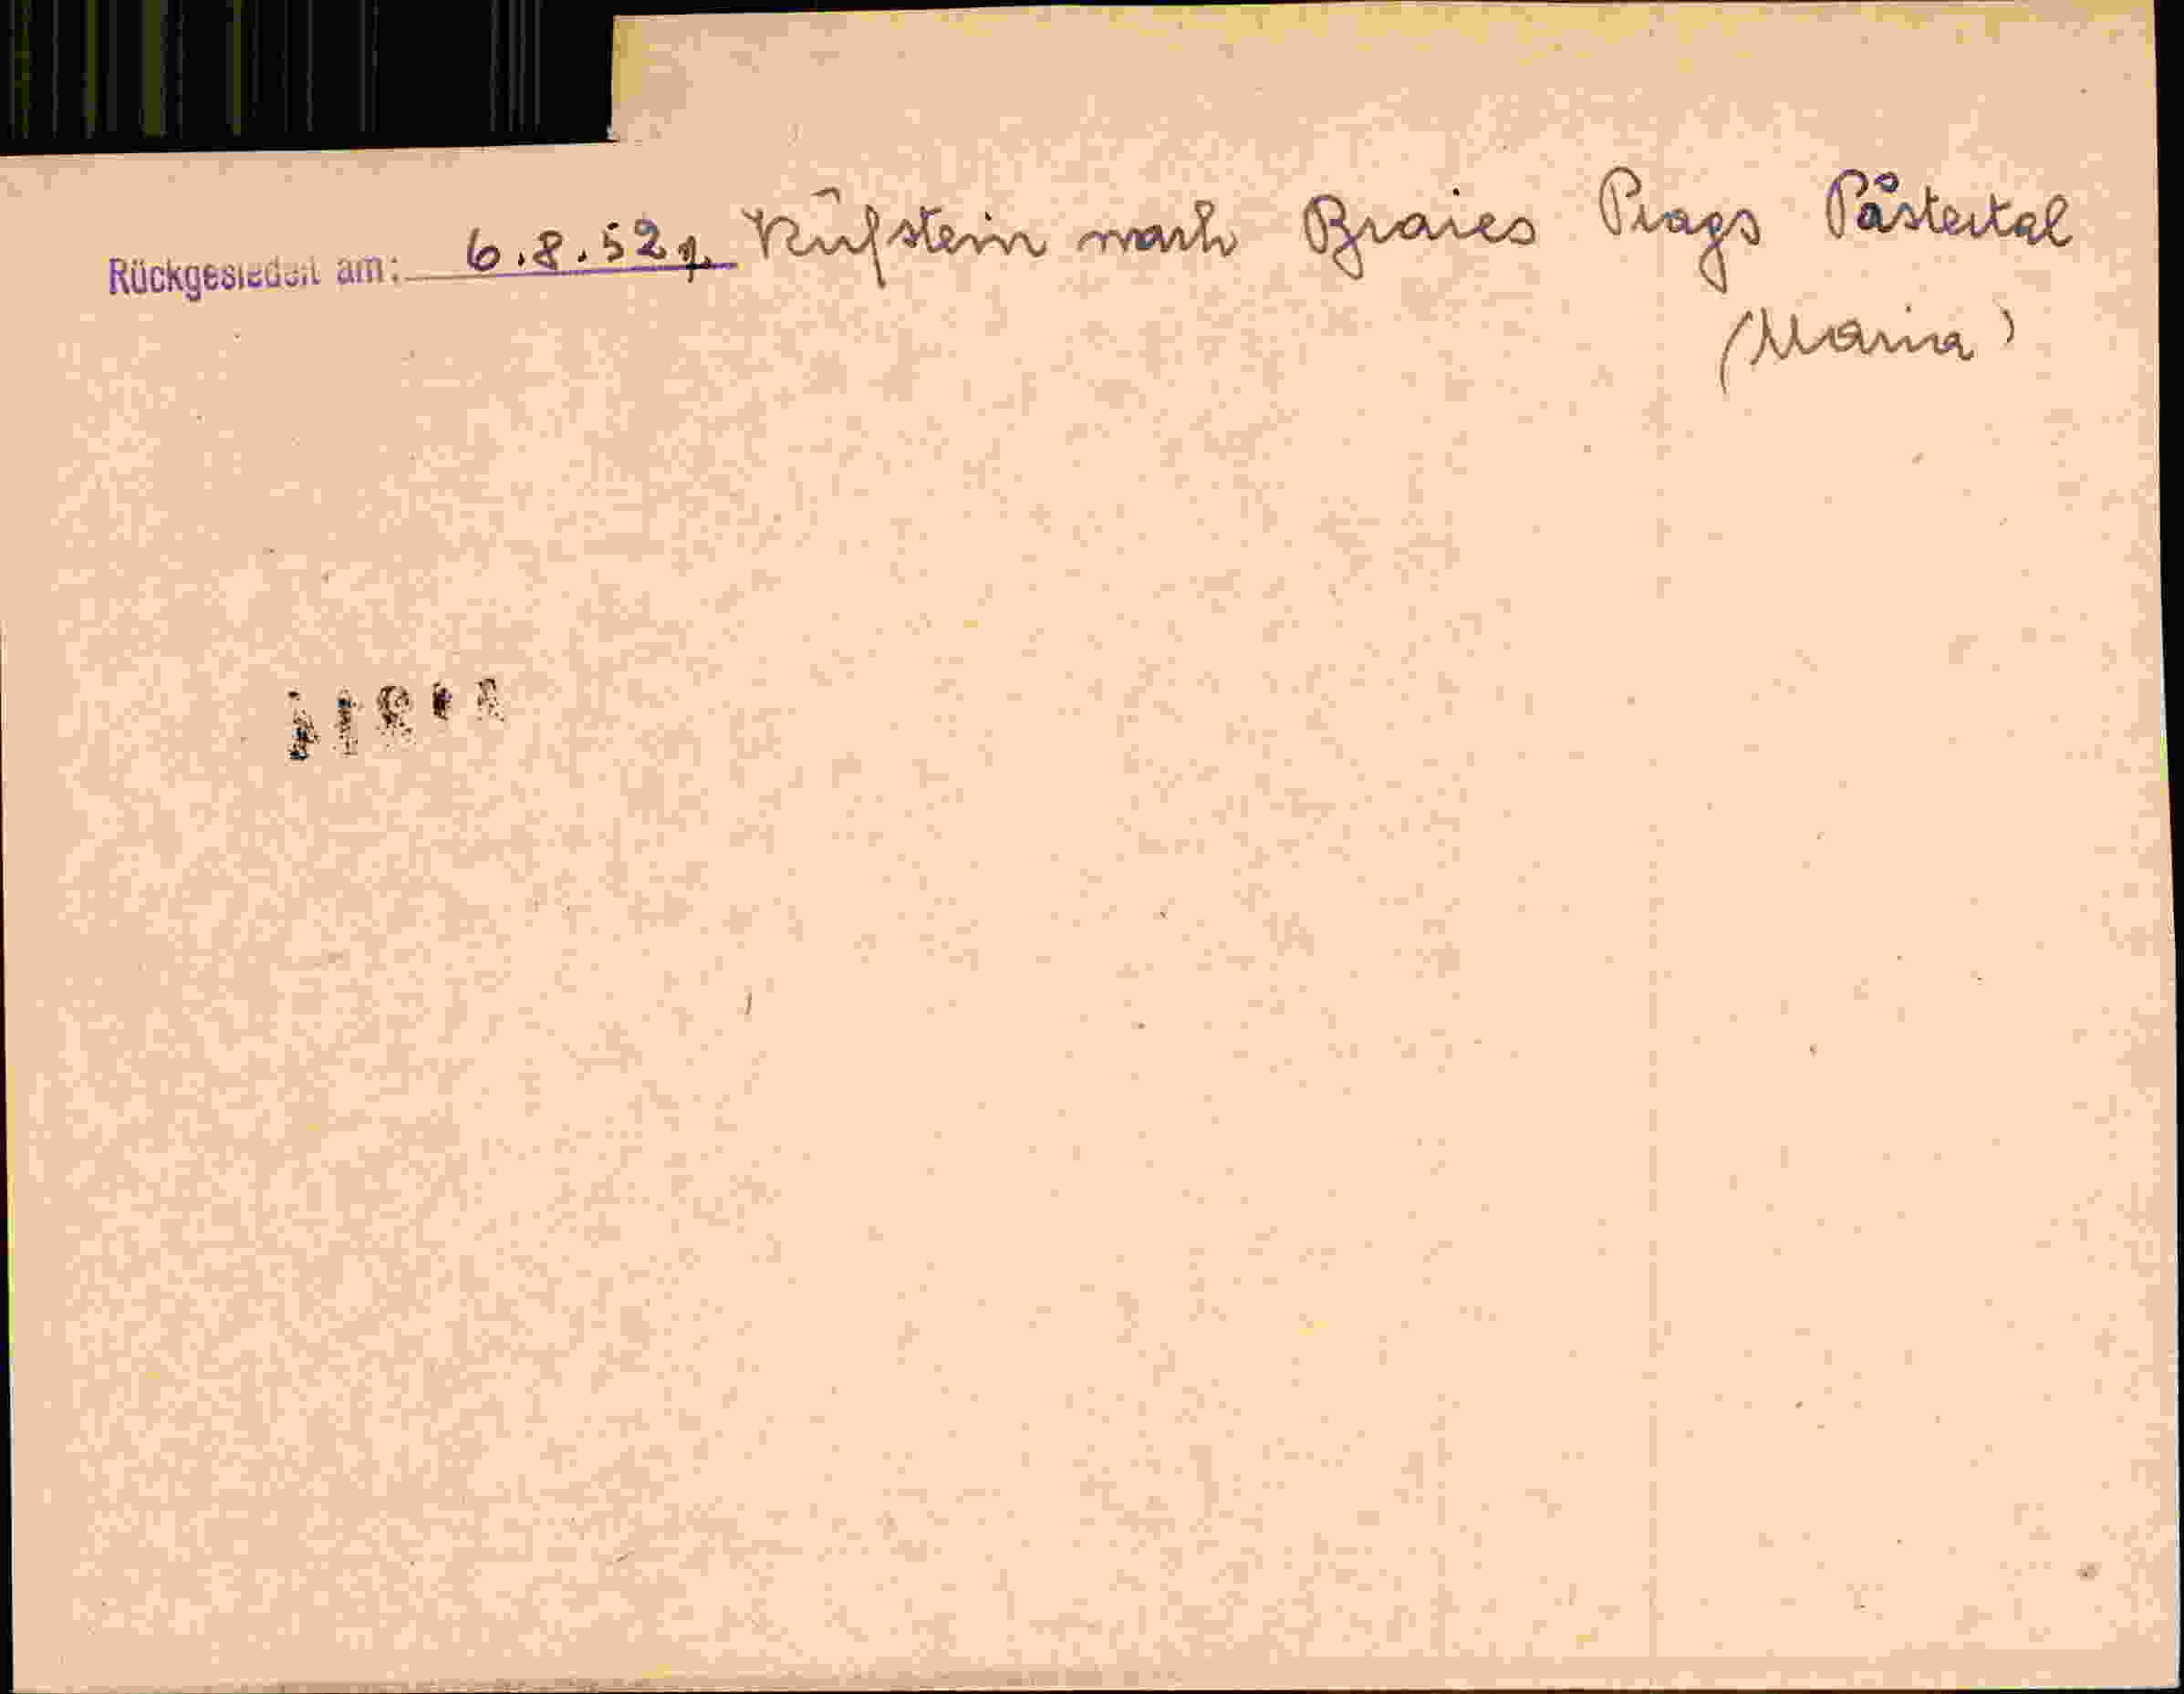 Rückgesiedelt am: 6.8.52 Kufstein nach Braies Prags Pustertal
(Maria)